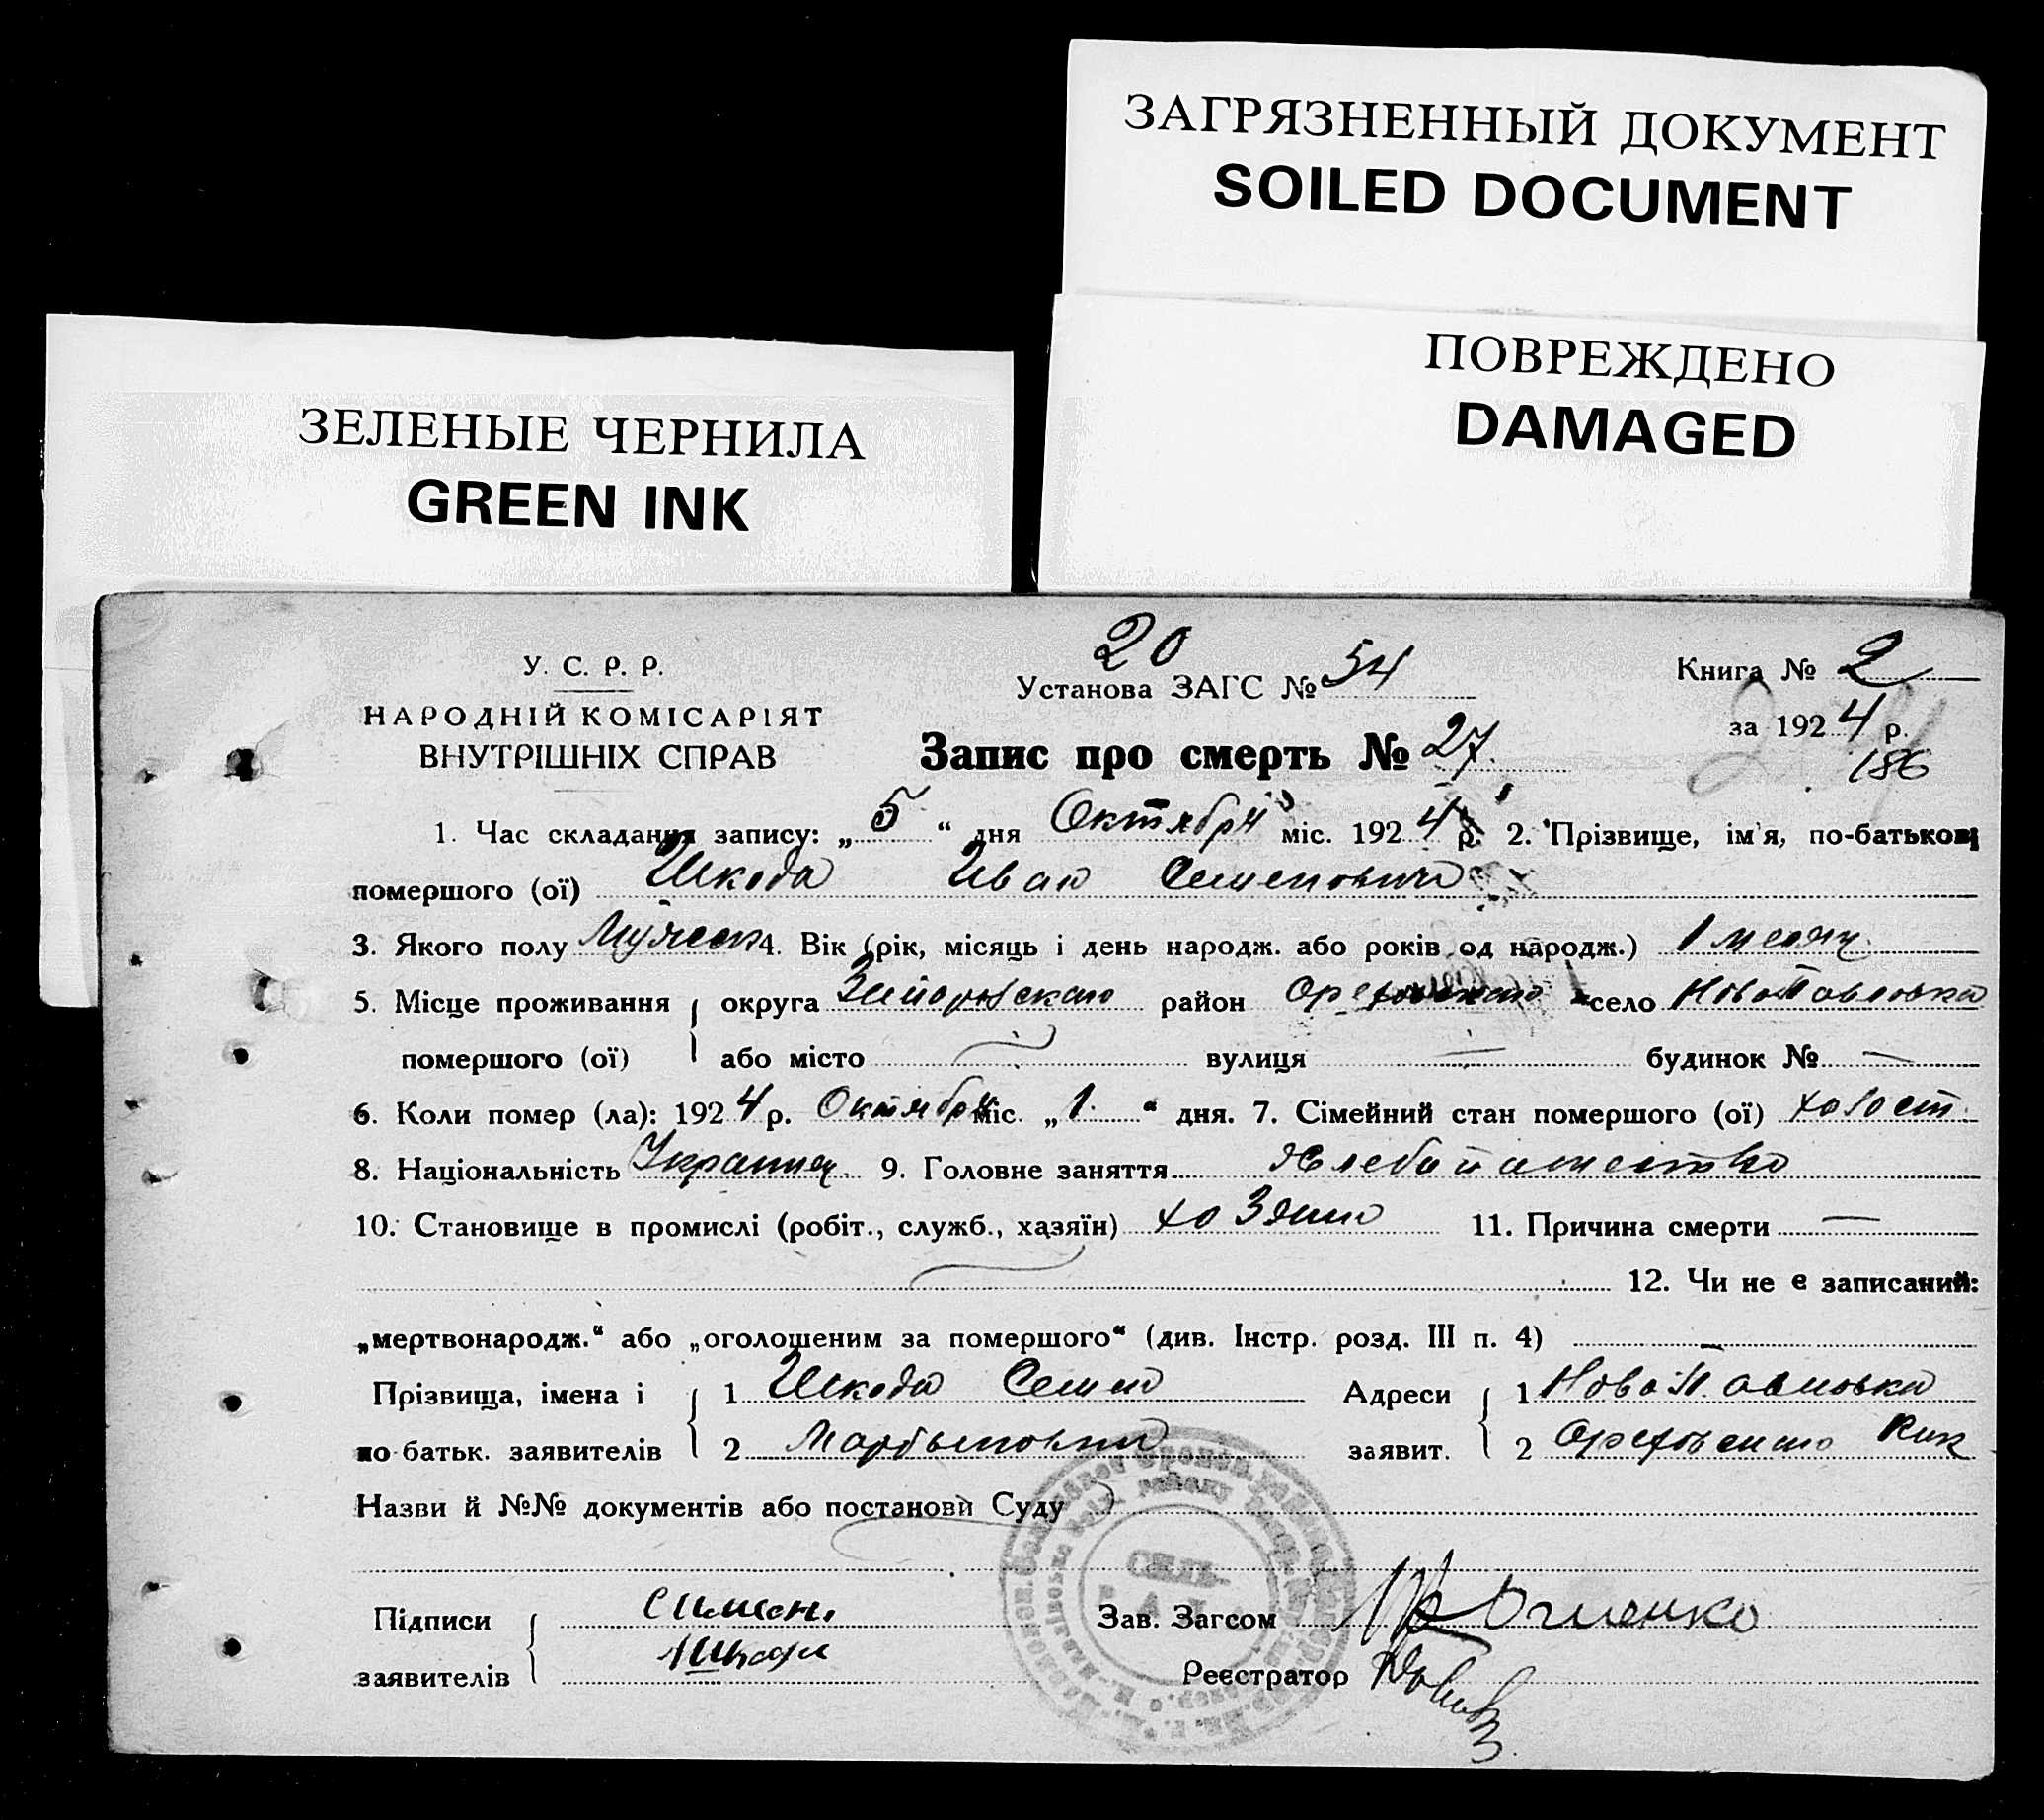 ЗАГРЯЗНЕННЫЙ ДОКУМЕНТ
SOILED DOCUMENT
ПОВРЕЖДЕНО
DAMAGED
ЗЕЛЕНЫЕ ЧЕРНИЛА
GREEN INK
У. С. Р. Р.
НАРОДНІЙ КОМІСАРІЯТ
ВНУТРІШНІХ СПРАВ
20
Установа ЗАГС № 54
Запис про смерть № 27.
Книга № 2
за 1924 р.
186
1. Час складання запису: „5“ дня Октября міс. 1924 р. 2. Прізвище, ім'я, по-батькові
помершого (ої) Шкода Иван Семенович
3. Якого полу Мужеск 4. Вік (рік, місяць і день народж. або років од народж.) 1 месяц.
5. Місце проживання округа район Ореховского село НовоПавловка
помершого (ої) або місто — вулиця — будинок № —
6. Коли помер (ла): 1924 р. Октября міс. „1.“ дня. 7. Сімейний стан помершого (ої) холост.
8. Національність Украинец. 9. Головне заняття Хлебопашество
10. Становище в промислі (робіт., служб., хазяїн) хозяин 11. Причина смерти —
12. Чи не є записаний:
„мертвонародж.“ або „оголошеним за помершого“ (див. Інстр. розд. III п. 4) —
Прізвища, імена і 1 Шкода Семен Адреси 1 НовоПавловка
по батьк. заявителів 2 заявит. 2 Ореховского Рик
Назви й №№ документів або постанови Суду
Підписи Зав. Загсом
заявителів Шкода Реєстратор